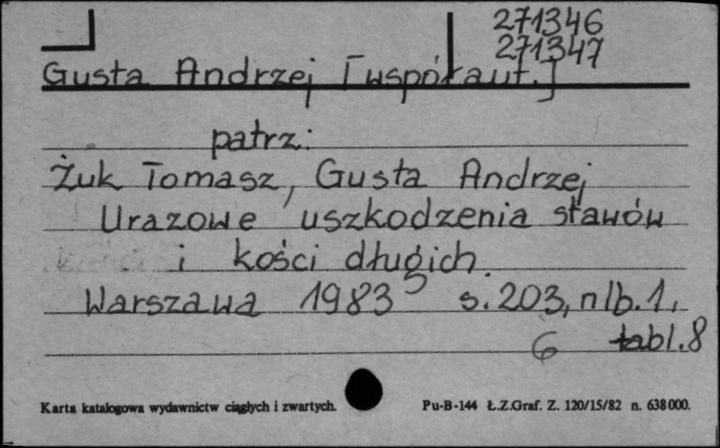 271346
271347
Gusta Andrzej [współaut.]
patrz:
Żuk Tomasz, Gusta Andrzej
Urazowe uszkodzenia stawów
i kości długich.
Warszawa 1983 s. 203, nlb. 1,
6 tabl. 8
Karta katalogowa wydawnictw ciągłych i zwartych. Pu-B-144 Ł.Z.Graf. Z. 120/15/82 n. 638000.